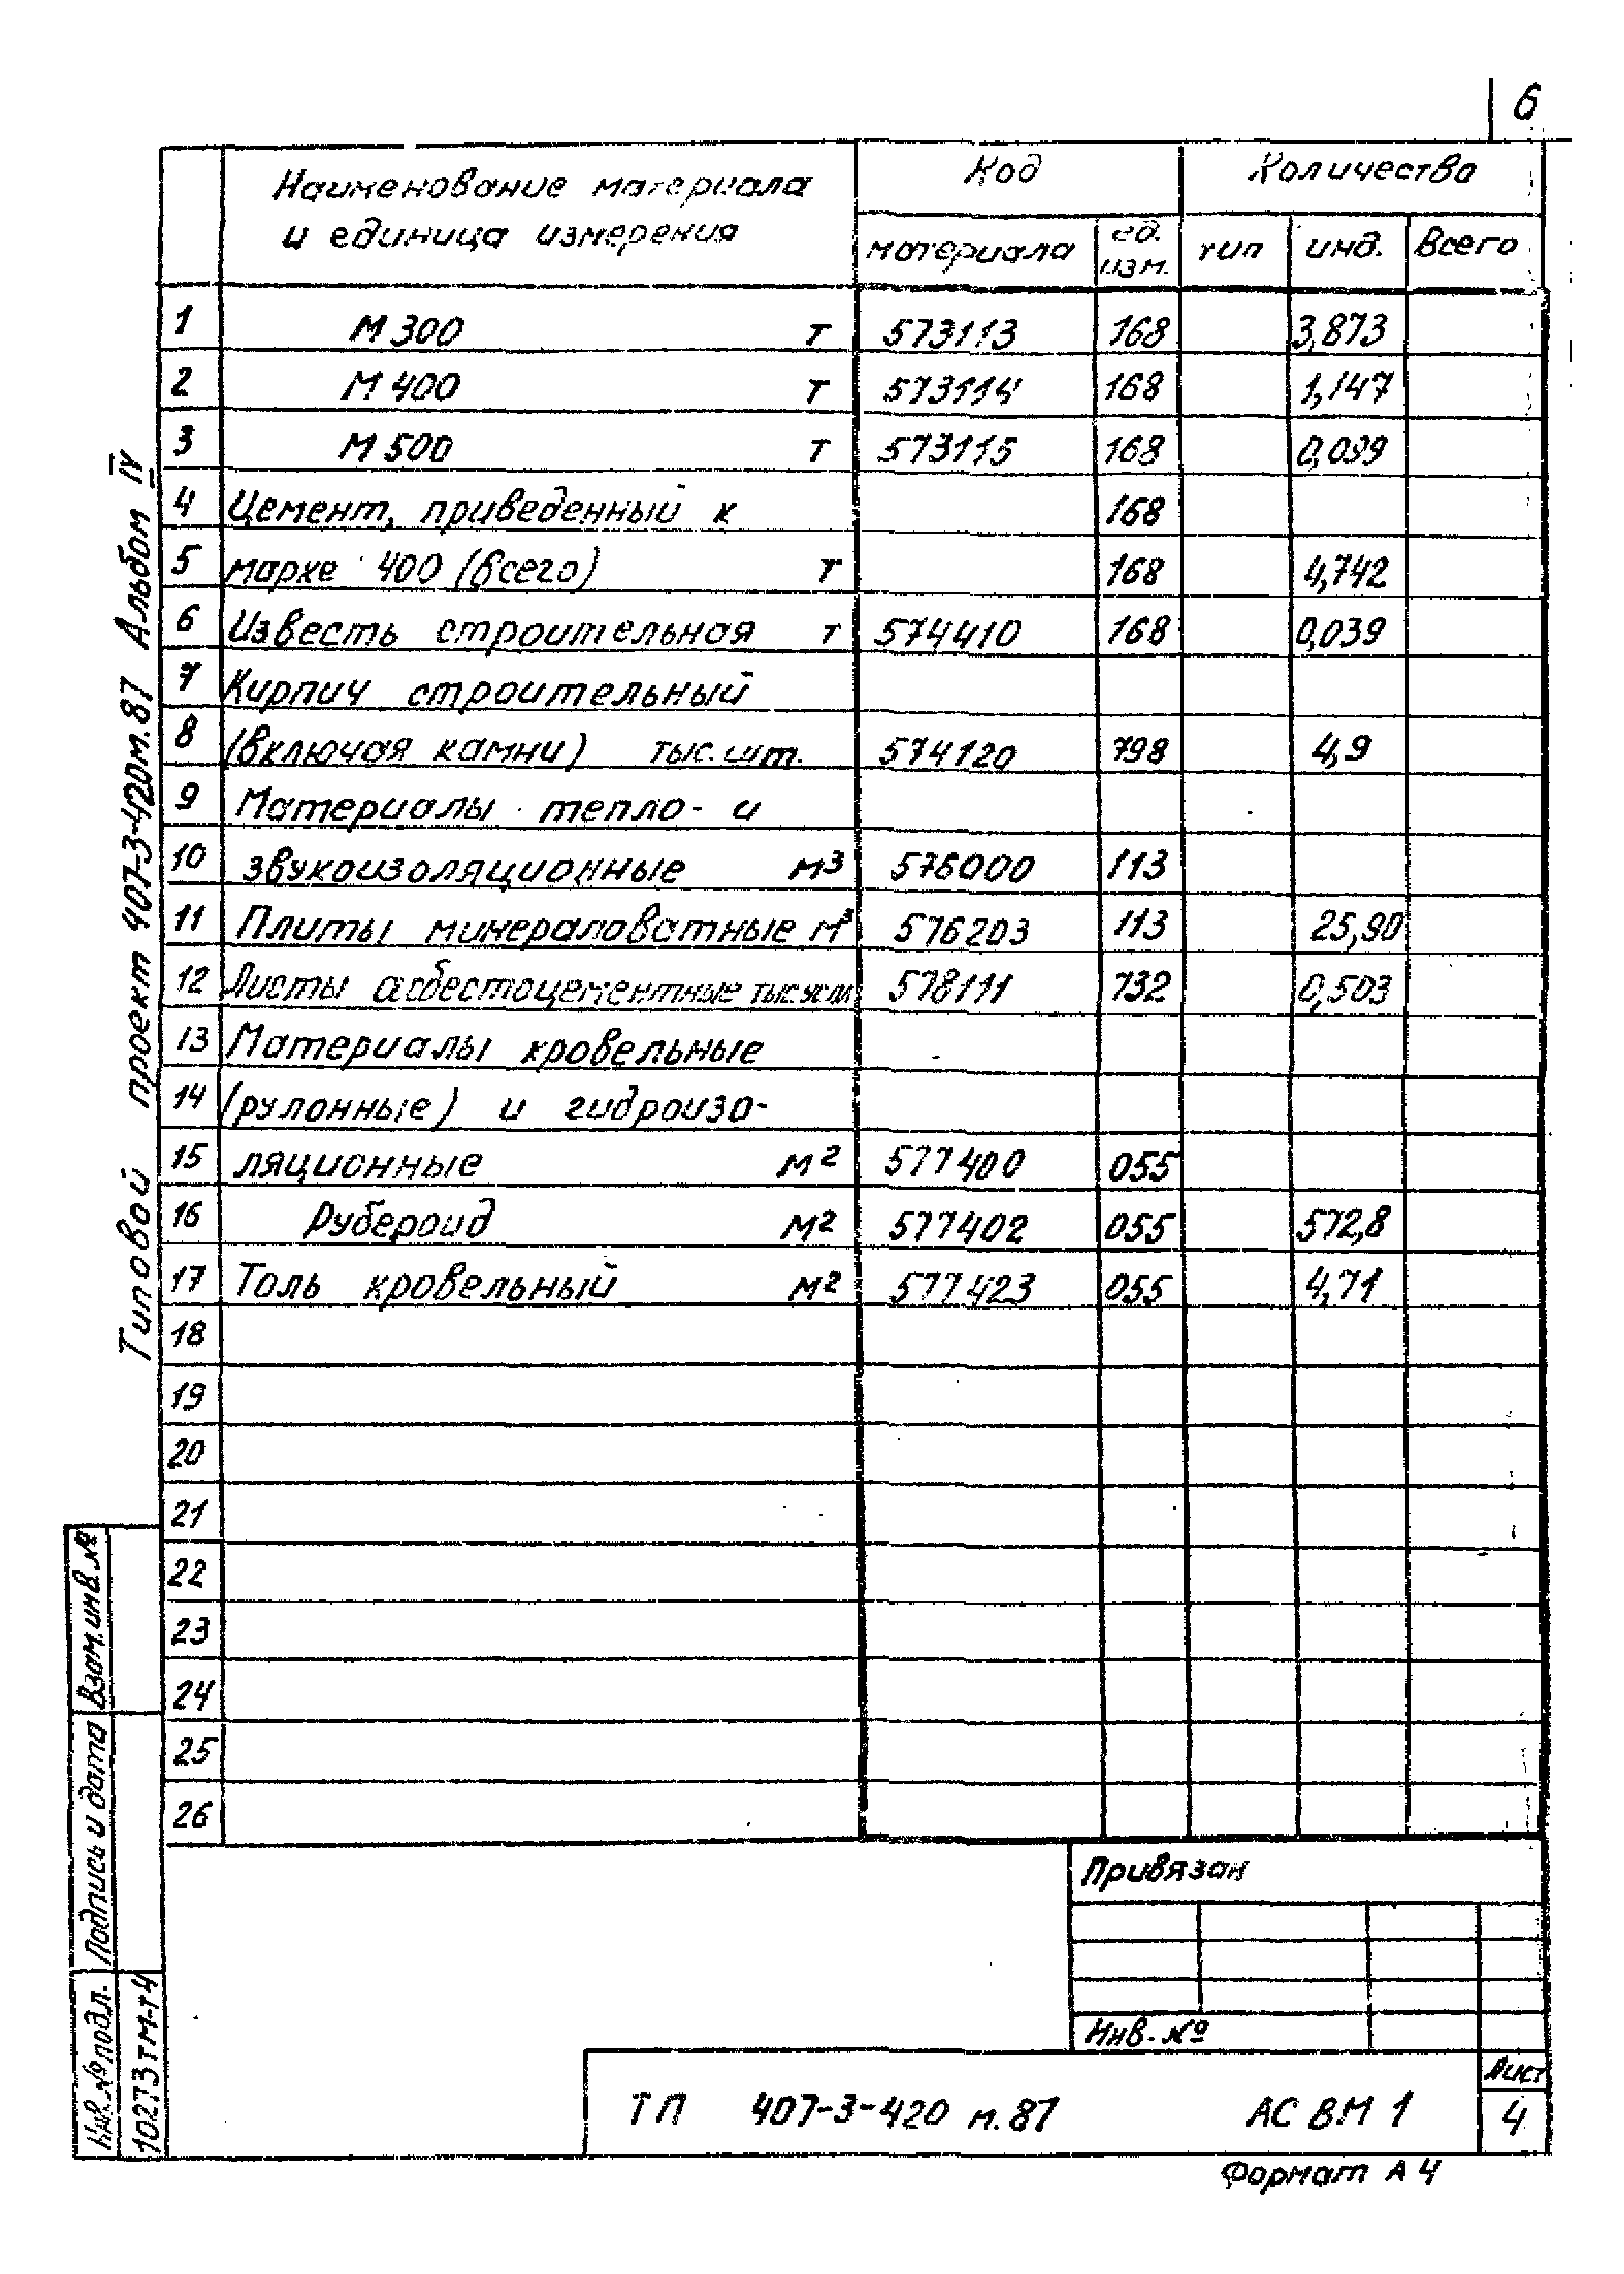 6
Наименование материала
и единица измерения
Код
Количество
материала
ед.
изм.
тип
инд.
Всего
1 М 300 т 573113 168 3,873
2 М 400 т 573114 168 1,147
3 М 500 т 573115 168 0,099
4 Цемент, приведенный к 168
5 марке 400 (всего) т 168 4,742
6 Известь строительная т 574410 168 0,039
7 Кирпич строительный
8 (включая камни) тыс. шт. 574120 798 4,9
9 Материалы тепло- и
10 звукоизоляционные м³ 576000 113
11 Плиты минераловатные м³ 576203 113 25,90
12 Листы асбестоцементные тыс 578111 732 0,503
13 Материалы кровельные
14 (рулонные) и гидроизо-
15 ляционные м² 577400 055
16 Рубероид м² 577402 055 572,8
17 Толь кровельный м² 577423 055 4,71
18
19
20
21
22
23
24
25
26
Типовой проект 407-3-420м.87 Альбом IV
Взам. инв. №
Подпись и дата
Инв. № подл.
10273тм-т4
Привязан
Инв. №
ТП 407-3-420 м.87 АС ВМ 1
Лист
4
Формат А4